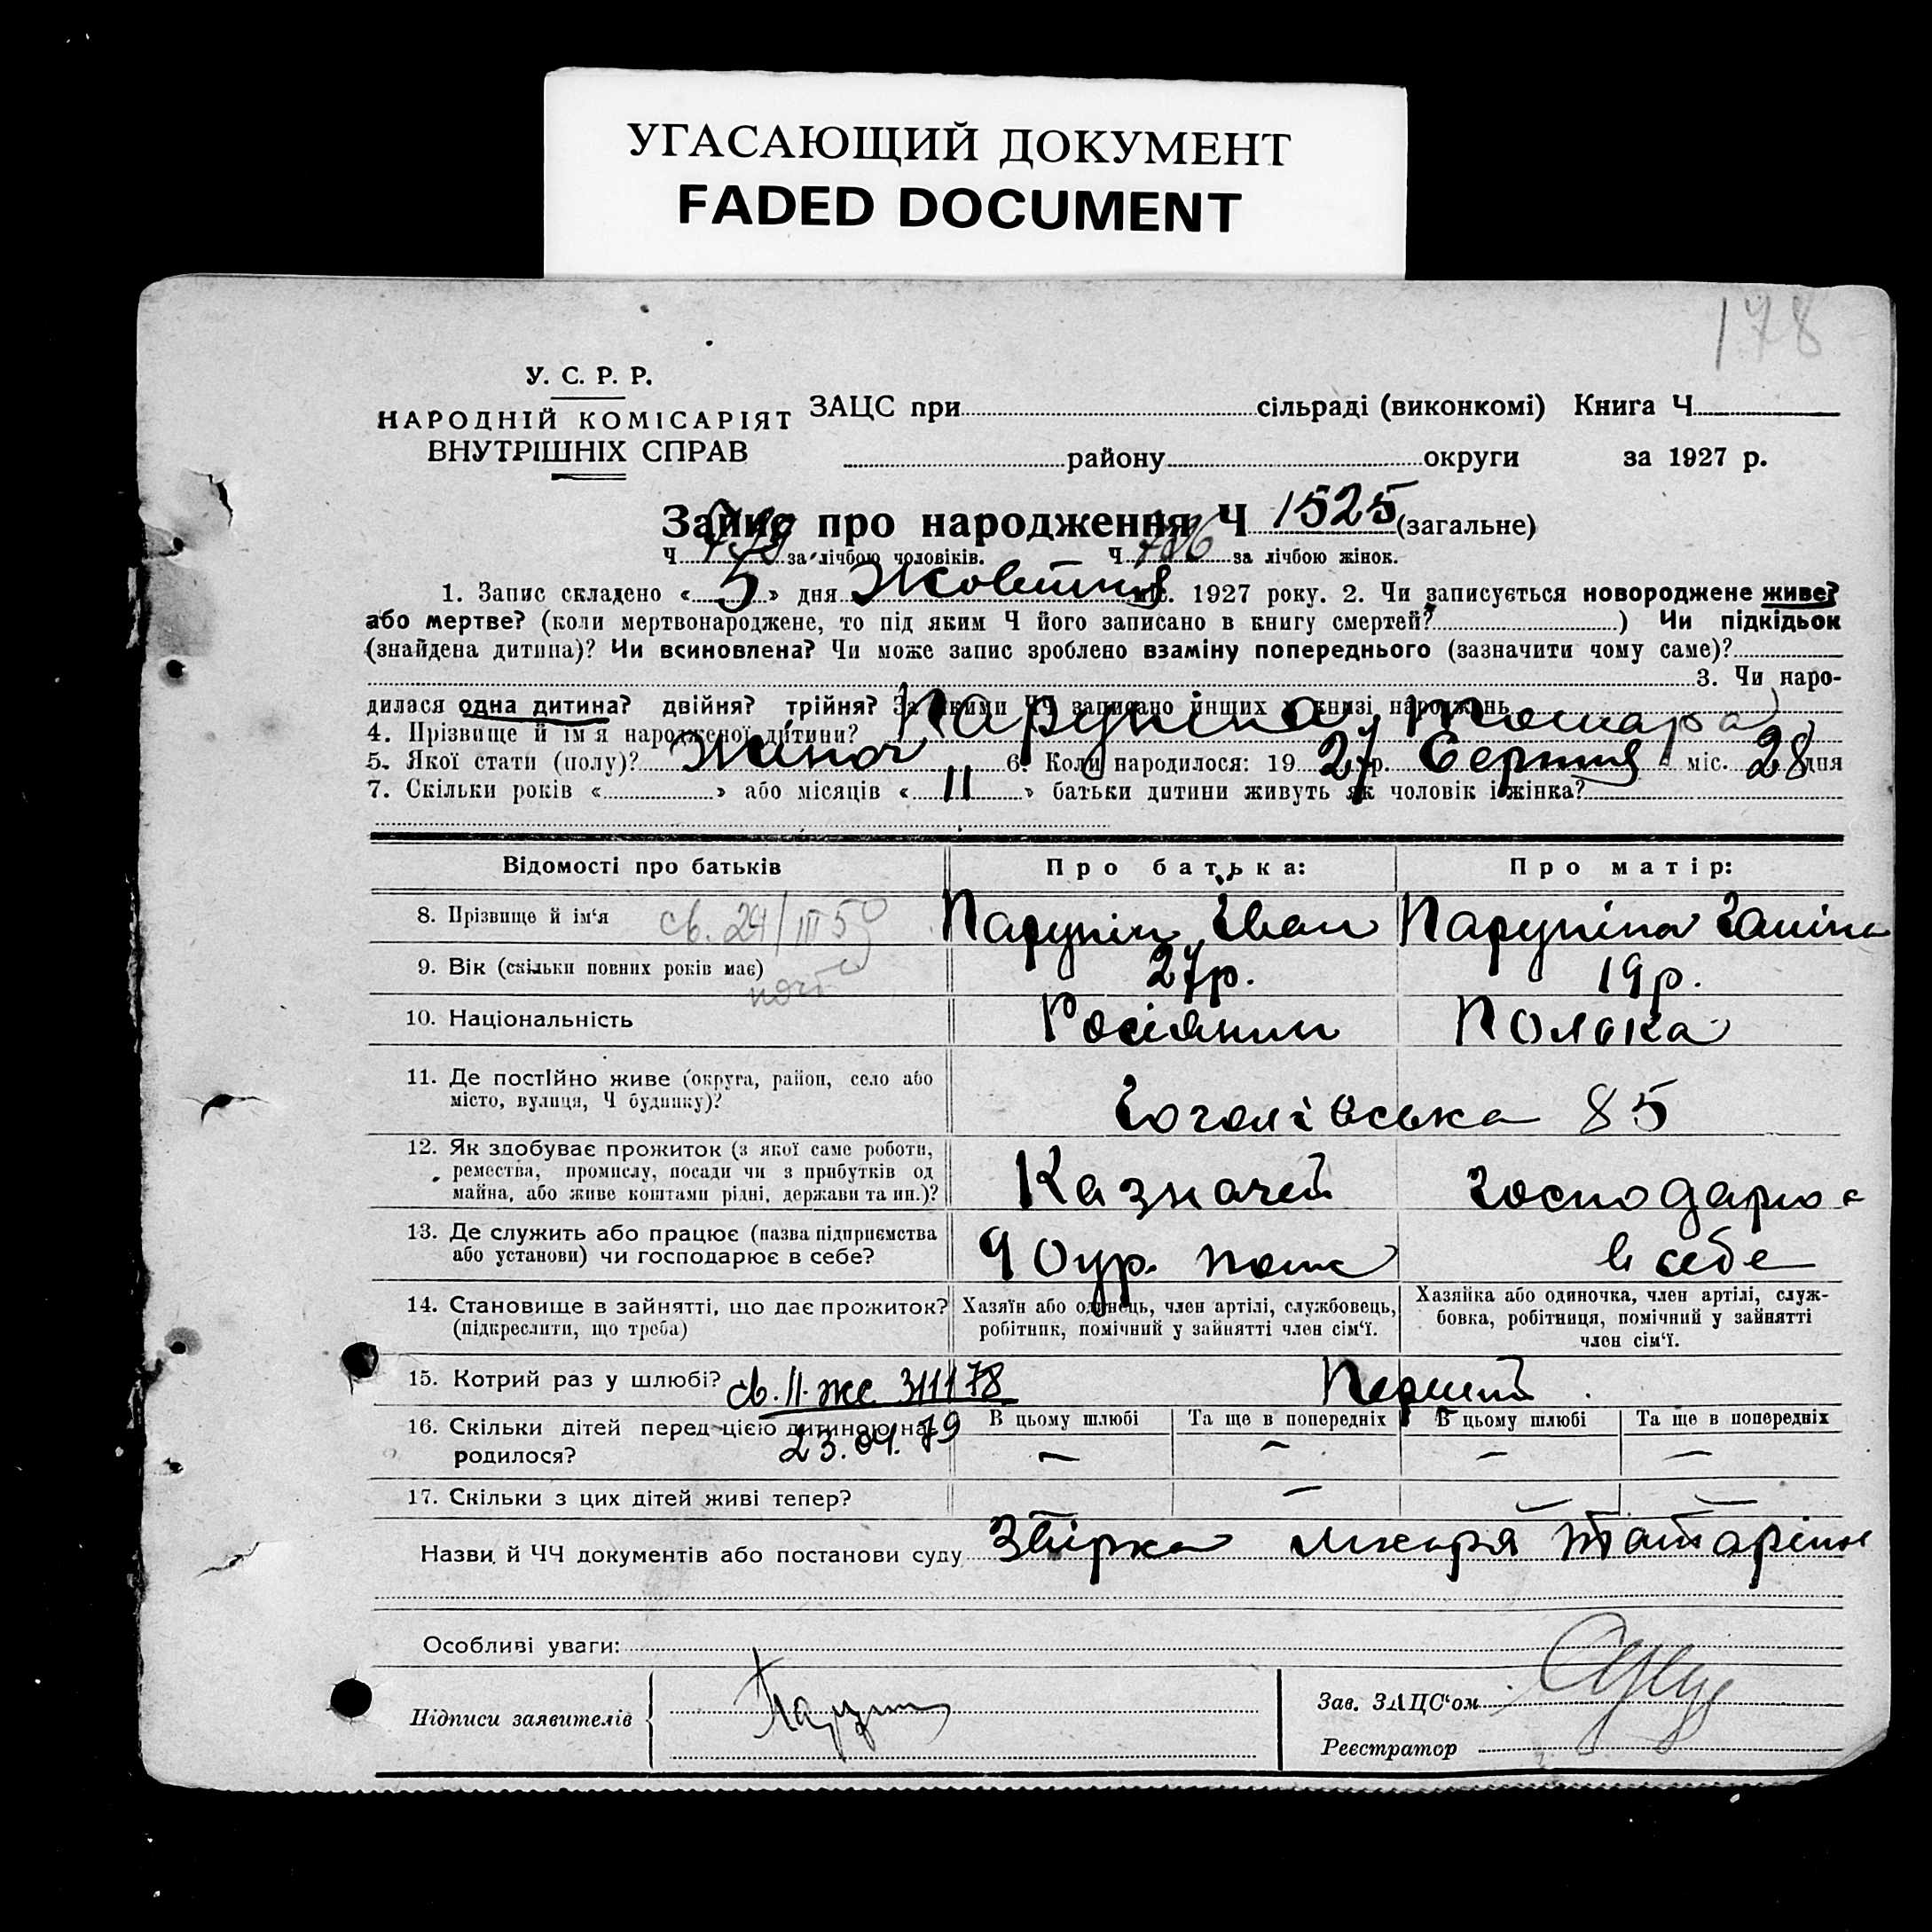 УГАСАЮЩИЙ ДОКУМЕНТ
FADED DOCUMENT
178
У. С. Р. Р.
НАРОДНІЙ КОМІСАРІЯТ
ВНУТРІШНІХ СПРАВ
ЗАЦС при сільраді (виконкомі) Книга Ч
району округи за 1927 р.
Запис про народження Ч 1525 (загальне)
Ч за лічбою чоловіків. Ч 786 за лічбою жінок.
1. Запис складено «5» дня Жовтня міс. 1927 року. 2. Чи записується новороджене живе?
або мертве? (коли мертвонароджене, то під яким Ч його записано в книгу смертей? ) Чи підкідьок
(знайдена дитина)? Чи всиновлена? Чи може запис зроблено взаміну попереднього (зазначити чому саме)?
3. Чи наро-
дилася одна дитина? двійня? трійня? За якими ЧЧ записано инших у книзі народжень
4. Прізвище й ім'я народженої дитини? Парупіна, Томара
5. Якої стати (полу)? Жіноч 6. Коли народилося: 1927 р. Серпня міс. 28 дня
7. Скільки років « » або місяців «11» батьки дитини живуть як чоловік і жінка?
Відомості про батьків Про батька: Про матір:
8. Прізвище й ім'я св. 24/III 5 Парупін Іван Парупіна Галіна
9. Вік (скільки повних років має) 27р. 19р.
10. Національність Росіянин Полька
11. Де постійно живе (округа, район, село або
місто, вулиця, Ч будинку)? Гоголівська 85
12. Як здобуває прожиток (з якої саме роботи,
ремества, промислу, посади чи з прибутків од
майна, або живе коштами рідні, держави та ин.)? Казначей Господарює
13. Де служить або працює (назва підприємства
або установи) чи господарює в себе? в себе
14. Становище в зайнятті, що дає прожиток?
(підкреслити, що треба)
Хазяїн або одинець, член артілі, службовець,
робітник, помічний у зайнятті член сім'ї.
Хазяйка або одиночка, член артілі, служ-
бовка, робітниця, помічний у зайнятті
член сім'ї.
15. Котрий раз у шлюбі? св. II-жс 311178 Перший
16. Скільки дітей перед цією дитиною на-
родилося? 23.04.79
В цьому шлюбі Та ще в попередніх В цьому шлюбі Та ще в попередніх
— — — —
17. Скільки з цих дітей живі тепер? — — —
Назви й ЧЧ документів або постанови суду Звірка лікаря
Особливі уваги:
Підписи заявителів
Зав. ЗАЦС'ом
Реєстратор